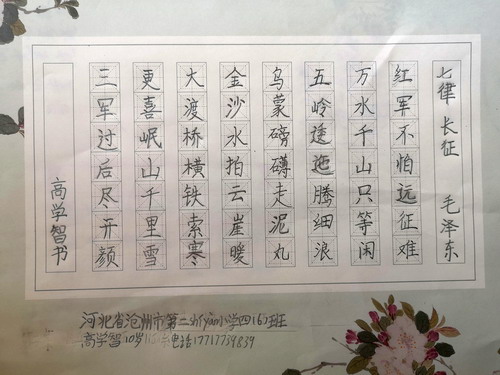 七律 长征 毛泽东
红军不怕远征难
万水千山只等闲
五岭逶迤腾细浪
乌蒙磅礴走泥丸
金沙水拍云崖暖
大渡桥横铁索寒
更喜岷山千里雪
三军过后尽开颜
高学智书
河北省沧州市第二小学四(6)班
高学智10岁 电话17717739839